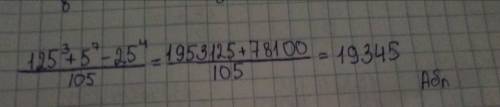 125³+5⁷-25⁴/105 = 1953125+78100/105 = 19345
Абп